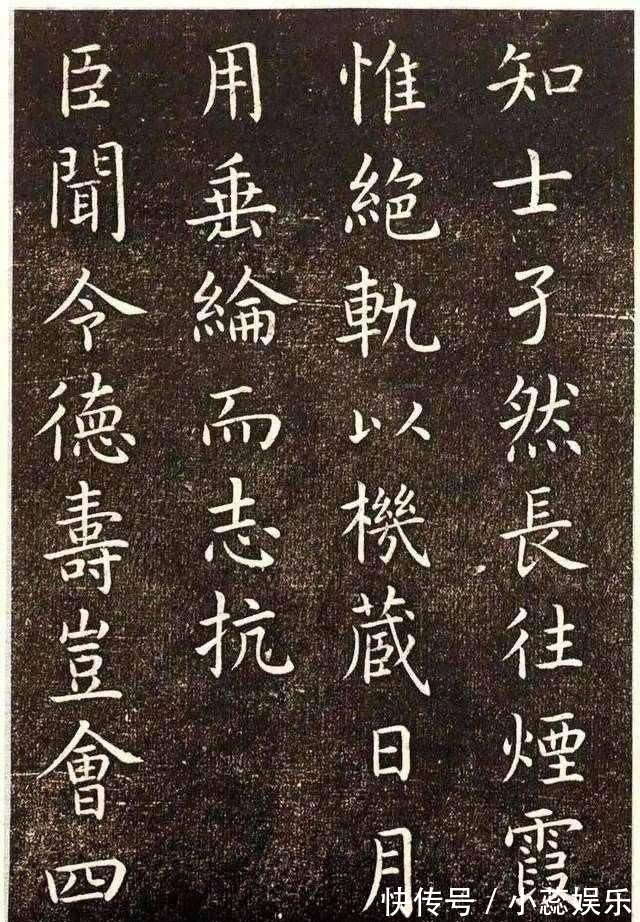 知士孑然長往煙霞
惟絕軌以機蔵日月
用垂綸而志抗
臣聞令德壽豈會四
快传号/小蕊娱乐